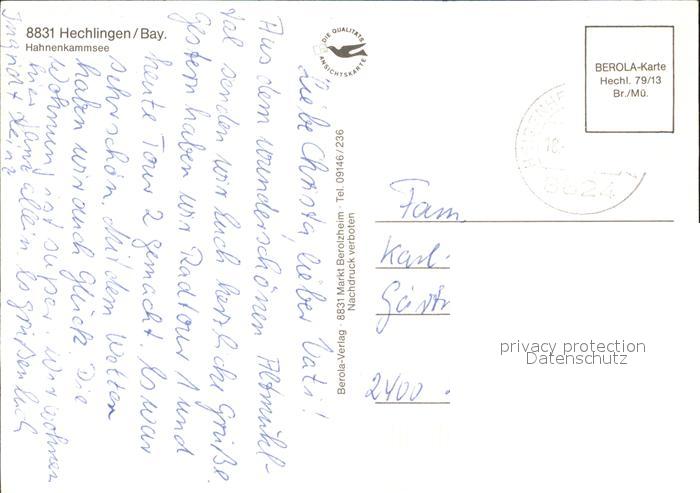 8831 Hechlingen/Bay.
Hahnenkammsee
Liebe Christa, lieber Vati!
Aus dem wunderschönen Altmühl-
tal senden wir Euch herzliche Grüße.
Gestern haben wir Radtour 1 und
heute Tour 2 gemacht. Es war
sehr schön. Mit dem Wetter
haben wir auch Glück. Die
Wohnung ist super. Wir wohnen
hier ganz allein. Es grüßen Euch
Ingrid + Heinz
DIE QUALITÄTS
ANSICHTSKARTE
Berola-Verlag · 8831 Markt Berolzheim · Tel. 09146/236
Nachdruck verboten
BEROLA-Karte
Hechl. 79/13
Br./Mü.
Fam.
Karl
2400
privacy protection
Datenschutz